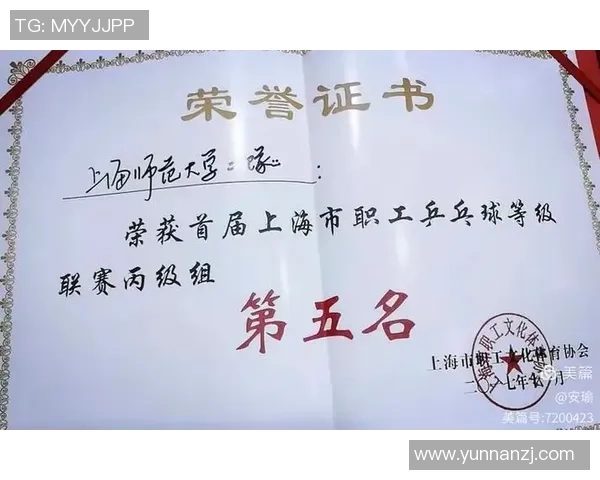 TG: MYYJJPP
荣誉证书
上海师范大学二队:
荣获首届上海市职工乒乓球等级
联赛丙级组
第五名
上海市职工文化体育协会
二〇一七年十一月
美篇
@安瑜
美篇号:7200423
www.yunnanzj.com